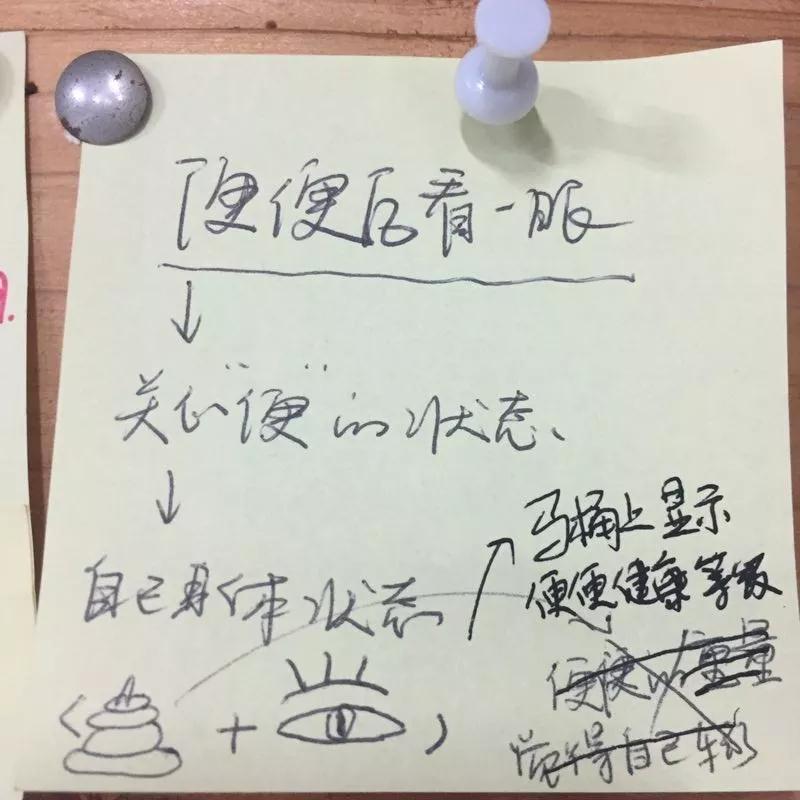 便便后看一眼
↓
关心"便"的状态、
↓
自己身体状态
( + )
马桶上显示
便便健康等级
便便的重量
觉得自己轻